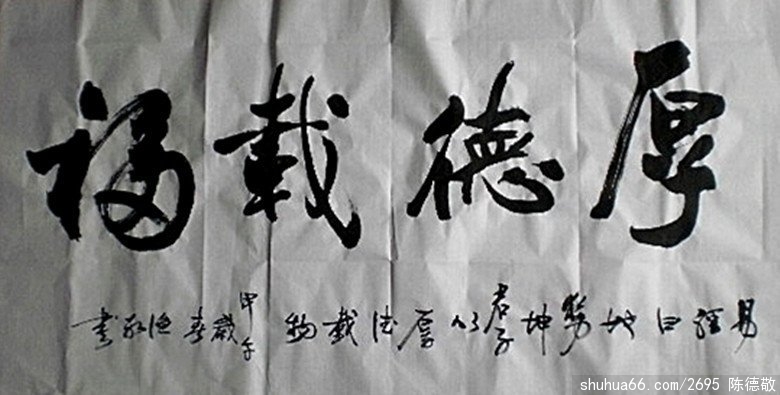 厚德載福
易經曰地勢坤君子以厚德載物甲午歲春德敬書
shuhua66.com/2695 陈德敬